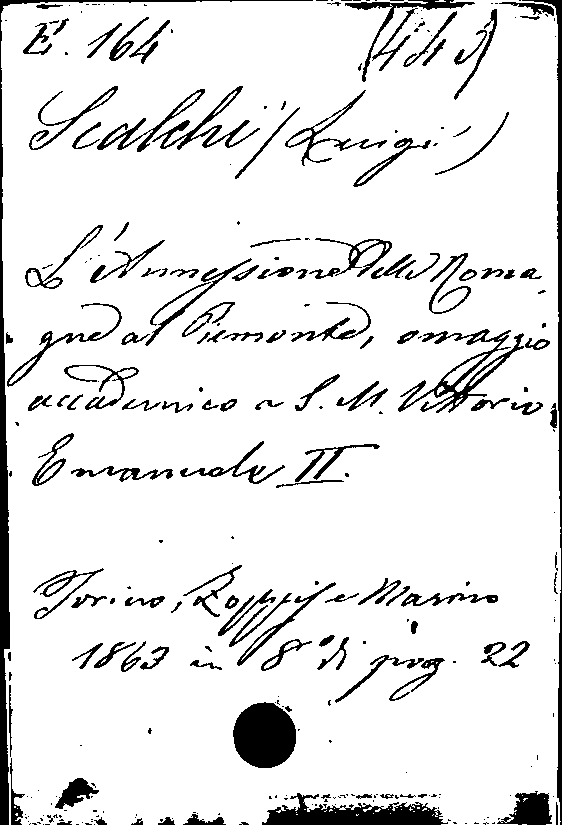 E. 164 (443)
Scalchi (Luigi)
L'Annessione delle Roma,
gne al Piemonte, omaggio
accademico a S. M. Vittorio
Emanuele II.
Torino, Zoppis e Marino
1863 in 8° di pag. 22